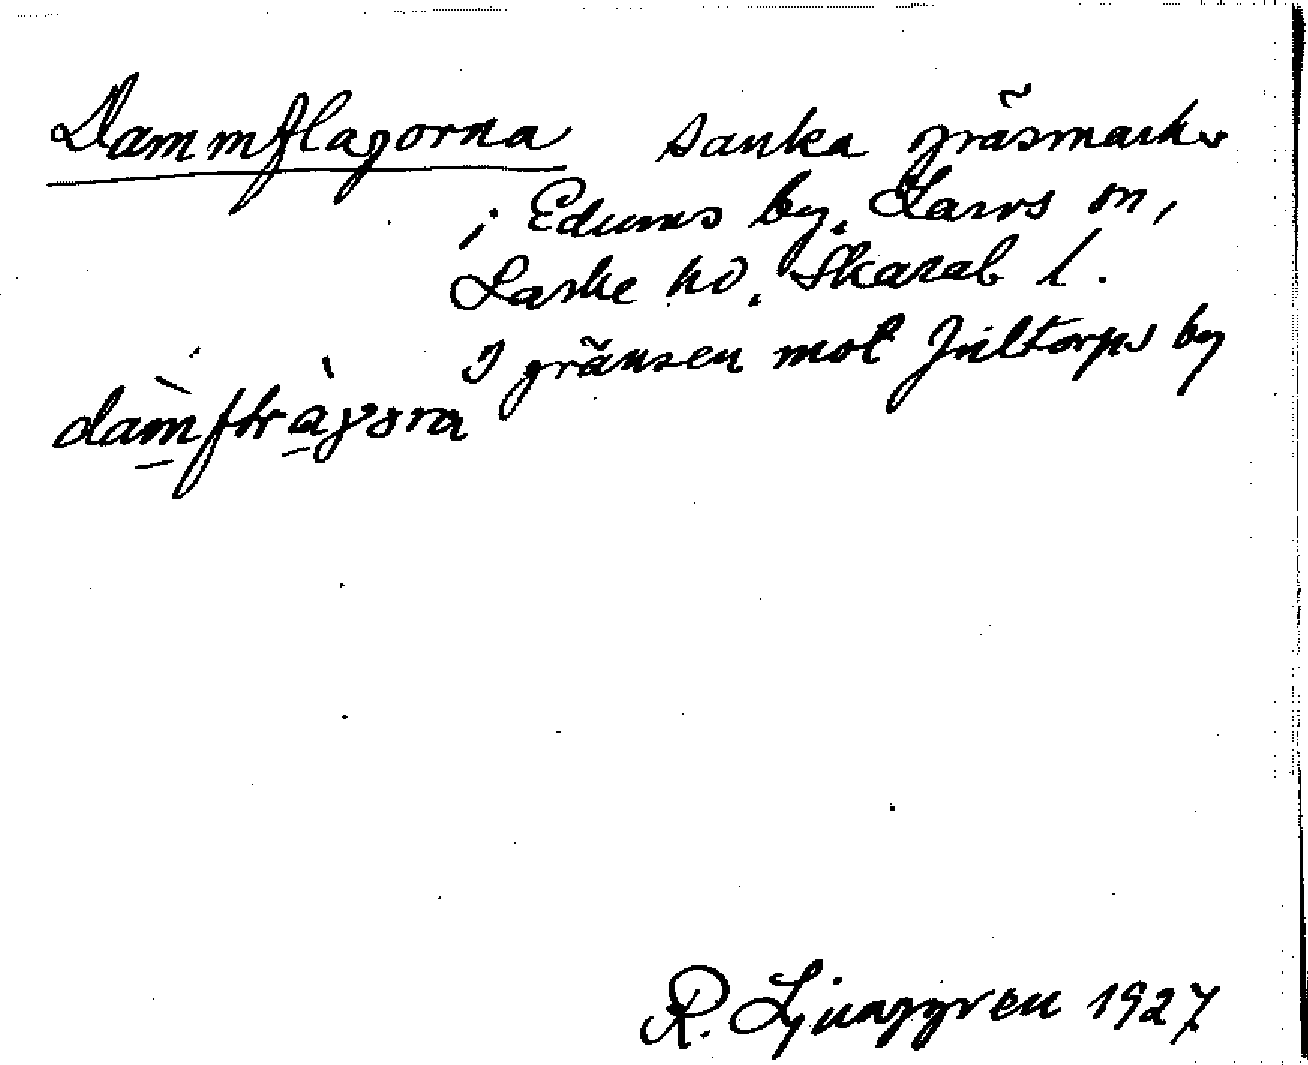 Dammflagorna sanka gräsmarker
i Edums by. Larvs sn,
Laske hd. Skarab l.
I gränsen mot Jultorps by
damflragsra
R. Ljunggren 1927